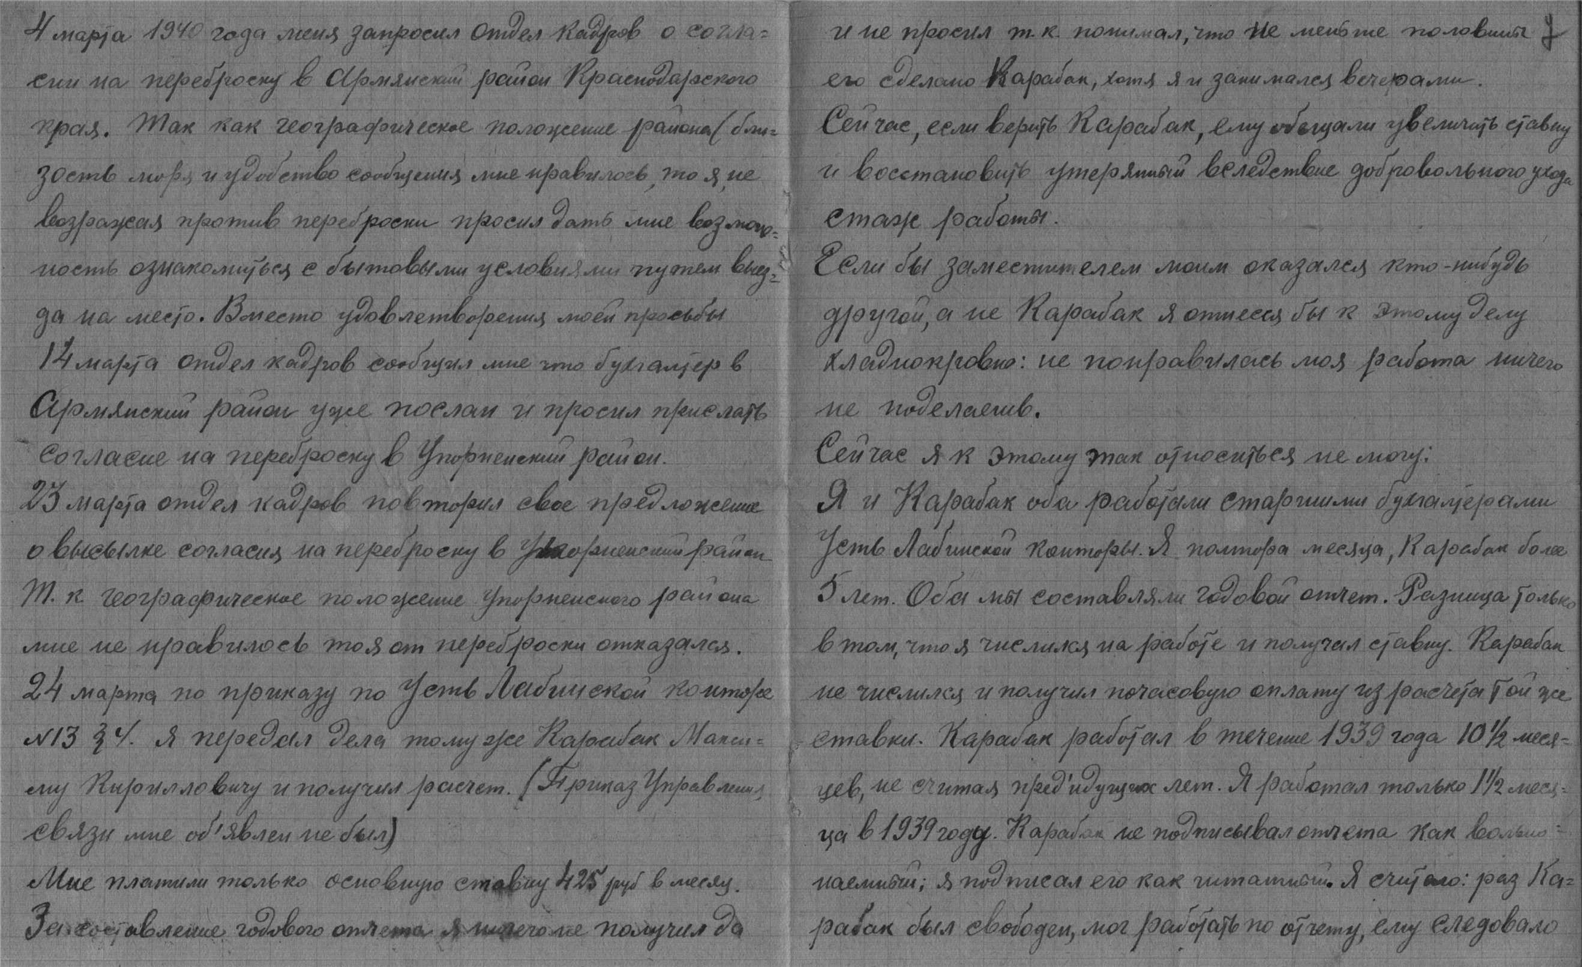 4 марта 1940 года меня запросил отдел кадров о согла=
сии на переброску в Армянский район Краснодарского
края. Так как географическое положение района (бли=
зость моря и удобство сообщения мне нравилось, то я, не
возражая против переброски просил дать мне возмож=
ность ознакомиться с бытовыми условиями путем выез=
да на место. Вместо удовлетворения моей просьбы
14 марта отдел кадров сообщил мне что бухгалтер в
Армянский район уже послан и просил прислать
согласие на переброску в Упорненский район.
23 марта отдел кадров повторил свое предложение
о высылке согласия на переброску в Упорненский район
Т. к. географическое положение Упорненского района
мне не нравилось то я от переброски отказался.
24 марта по приказу по Усть Лабинской конторе
№13 § 4. я передал дела тому же Карабак Макси=
му Кирилловичу и получил расчет. (Приказ Управления
связи мне об'явлен не был)
Мне платили только основную ставку 425 руб в месяц.
За составление годового отчета я ничего не получил да
и не просил т.к. понимал, что не меньше половины
его сделано Карабак, хотя я и занимался вечерами.
Сейчас, если верить Карабак, ему обещали увеличить ставку
и восстановить утерянный вследствие добровольного ухода
стаж работы.
Если бы заместителем моим оказался кто-нибудь
другой, а не Карабак я отнесся бы к этому делу
хладнокровно: не понравилась моя работа ничего
не поделаешь.
Сейчас я к этому так относиться не могу:
Я и Карабак оба работали старшими бухгалтерами
Усть Лабинской конторы. Я полтора месяца, Карабак более
5 лет. Оба мы составляли годовой отчет. Разница только
в том, что я числился на работе и получал ставку. Карабак
не числился и получил почасовую оплату из расчета той же
ставки. Карабак работал в течение 1939 года 10 1/2 меся=
цев, не считая пред'идущих лет. Я работал только 1 1/2 меся=
ца в 1939 году. Карабак не подписывал отчета как вольно=
наемный; я подписал его как штатный. Я считаю: раз Ка=
рабак был свободен, мог работать по отчету, ему следовало